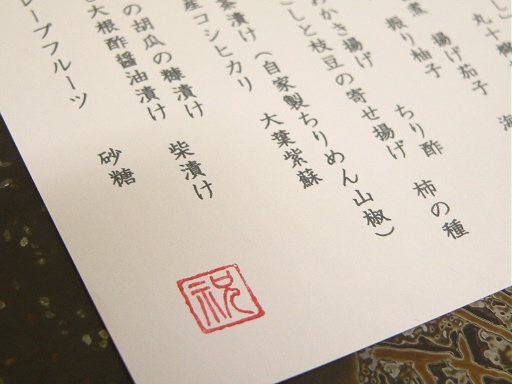 海
揚げ茄子
振り柚子
ちり酢 柿の種
かき揚げ
しと枝豆の寄せ揚げ
茶漬け(自家製ちりめん山椒)
大葉紫蘇
産コシヒカリ
の胡瓜の糠漬け 柴漬け
大根酢醤油漬け
砂糖
レープフルーツ
祝